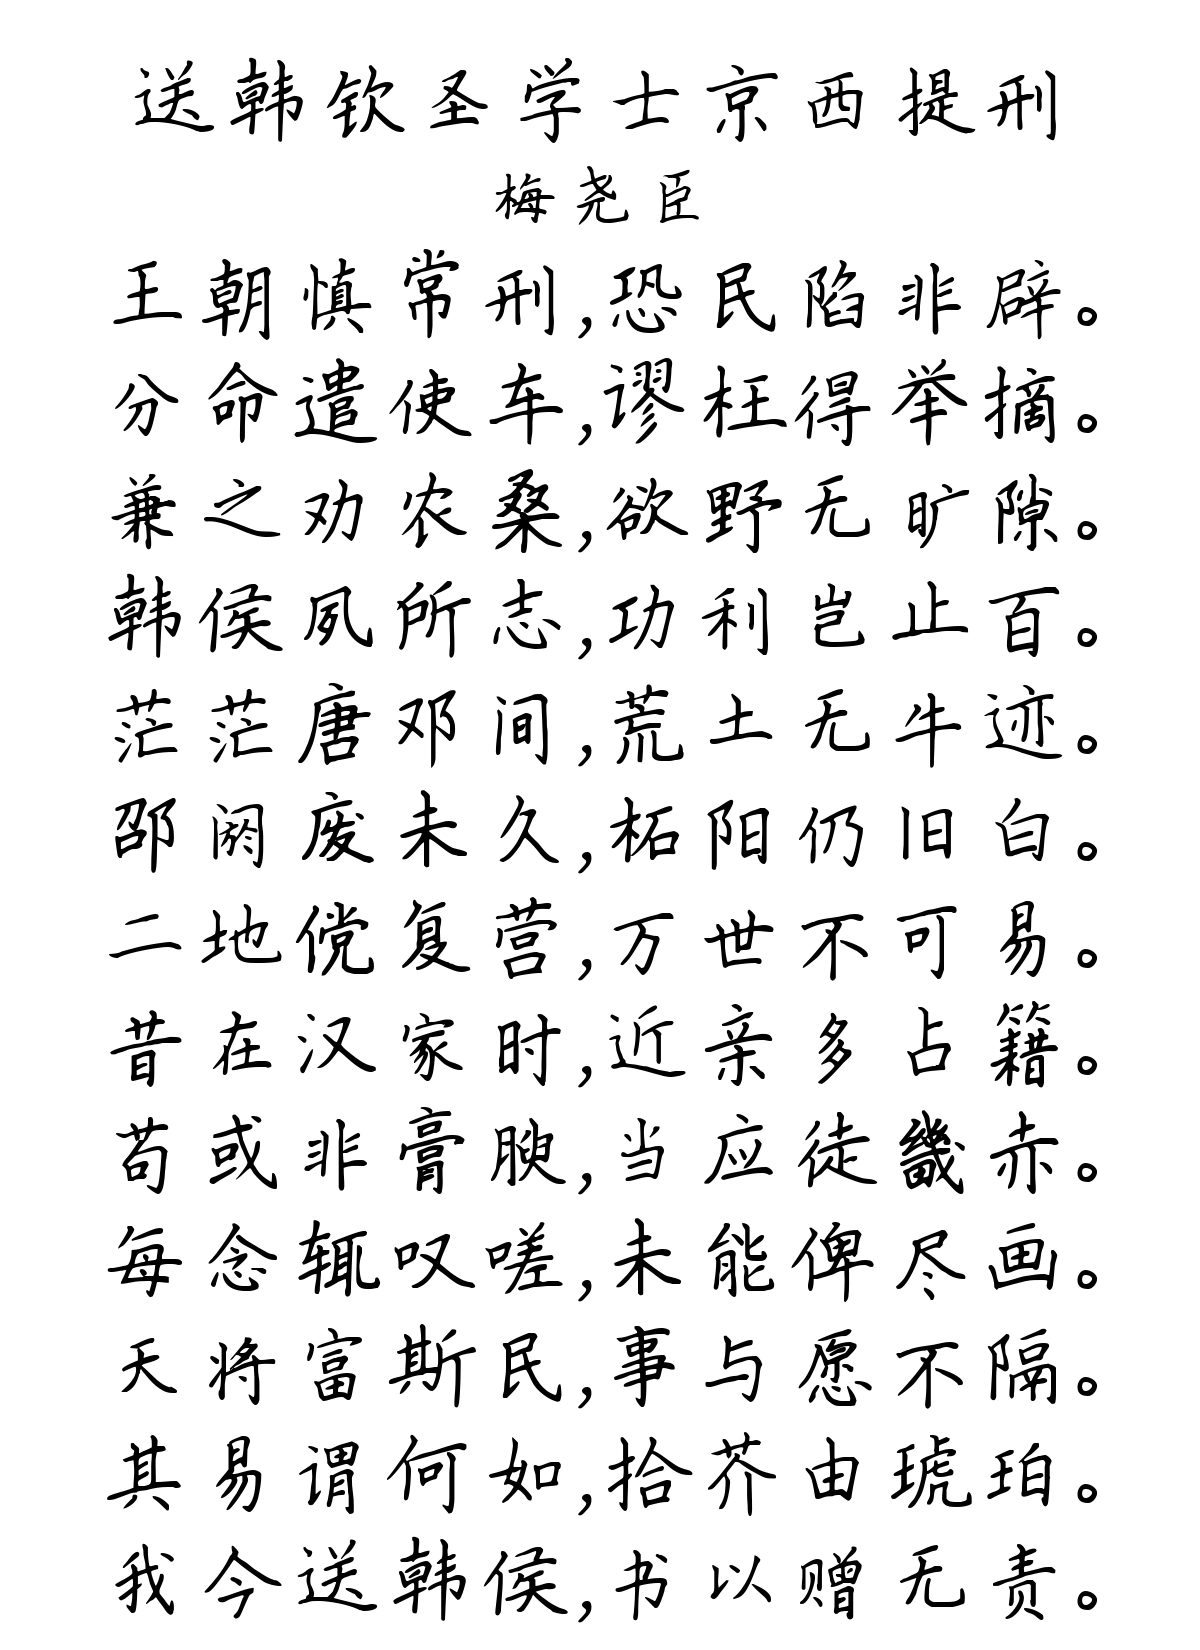 送韩钦圣学士京西提刑
梅尧臣
王朝慎常刑,恐民陷非辟。
分命遣使车,谬枉得举摘。
兼之劝农桑,欲野无旷隙。
韩侯夙所志,功利岂止百。
茫茫唐邓间,荒土无牛迹。
邵阏废未久,柘阳仍旧白。
二地傥复营,万世不可易。
昔在汉家时,近亲多占籍。
苟或非膏腴,当应徒畿赤。
每念辄叹嗟,未能俾尽画。
天将富斯民,事与愿不隔。
其易谓何如,拾芥由琥珀。
我今送韩侯,书以赠无责。